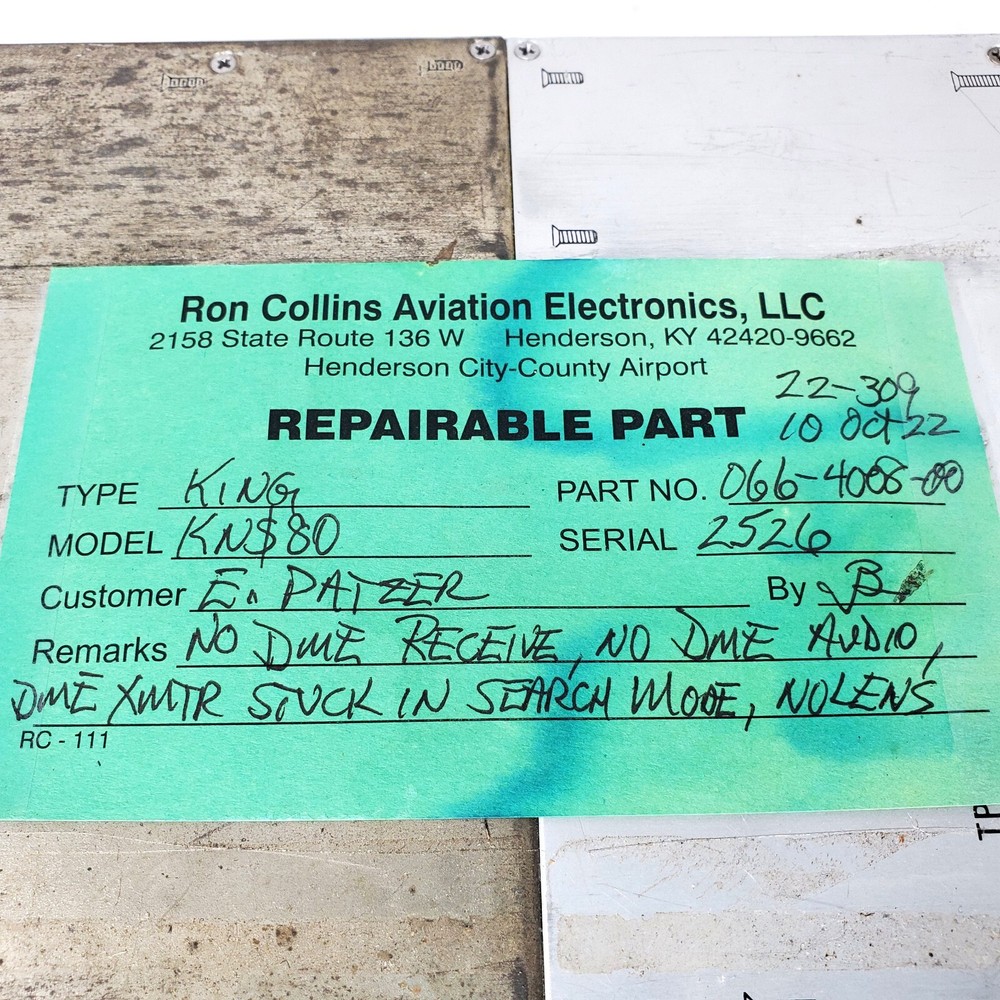 Ron Collins Aviation Electronics, LLC
2158 State Route 136 W Henderson, KY 42420-9662
Henderson City-County Airport
22-309
REPAIRABLE PART 10 Oct 22
TYPE KING PART NO. 066-4008-00
MODEL KN$80 SERIAL 2526
Customer E. PATZER By JB
Remarks NO DME RECEIVE, NO DME AUDIO,
DME XMTR STUCK IN SEARCH MODE, NO LENS
RC - 111
TP